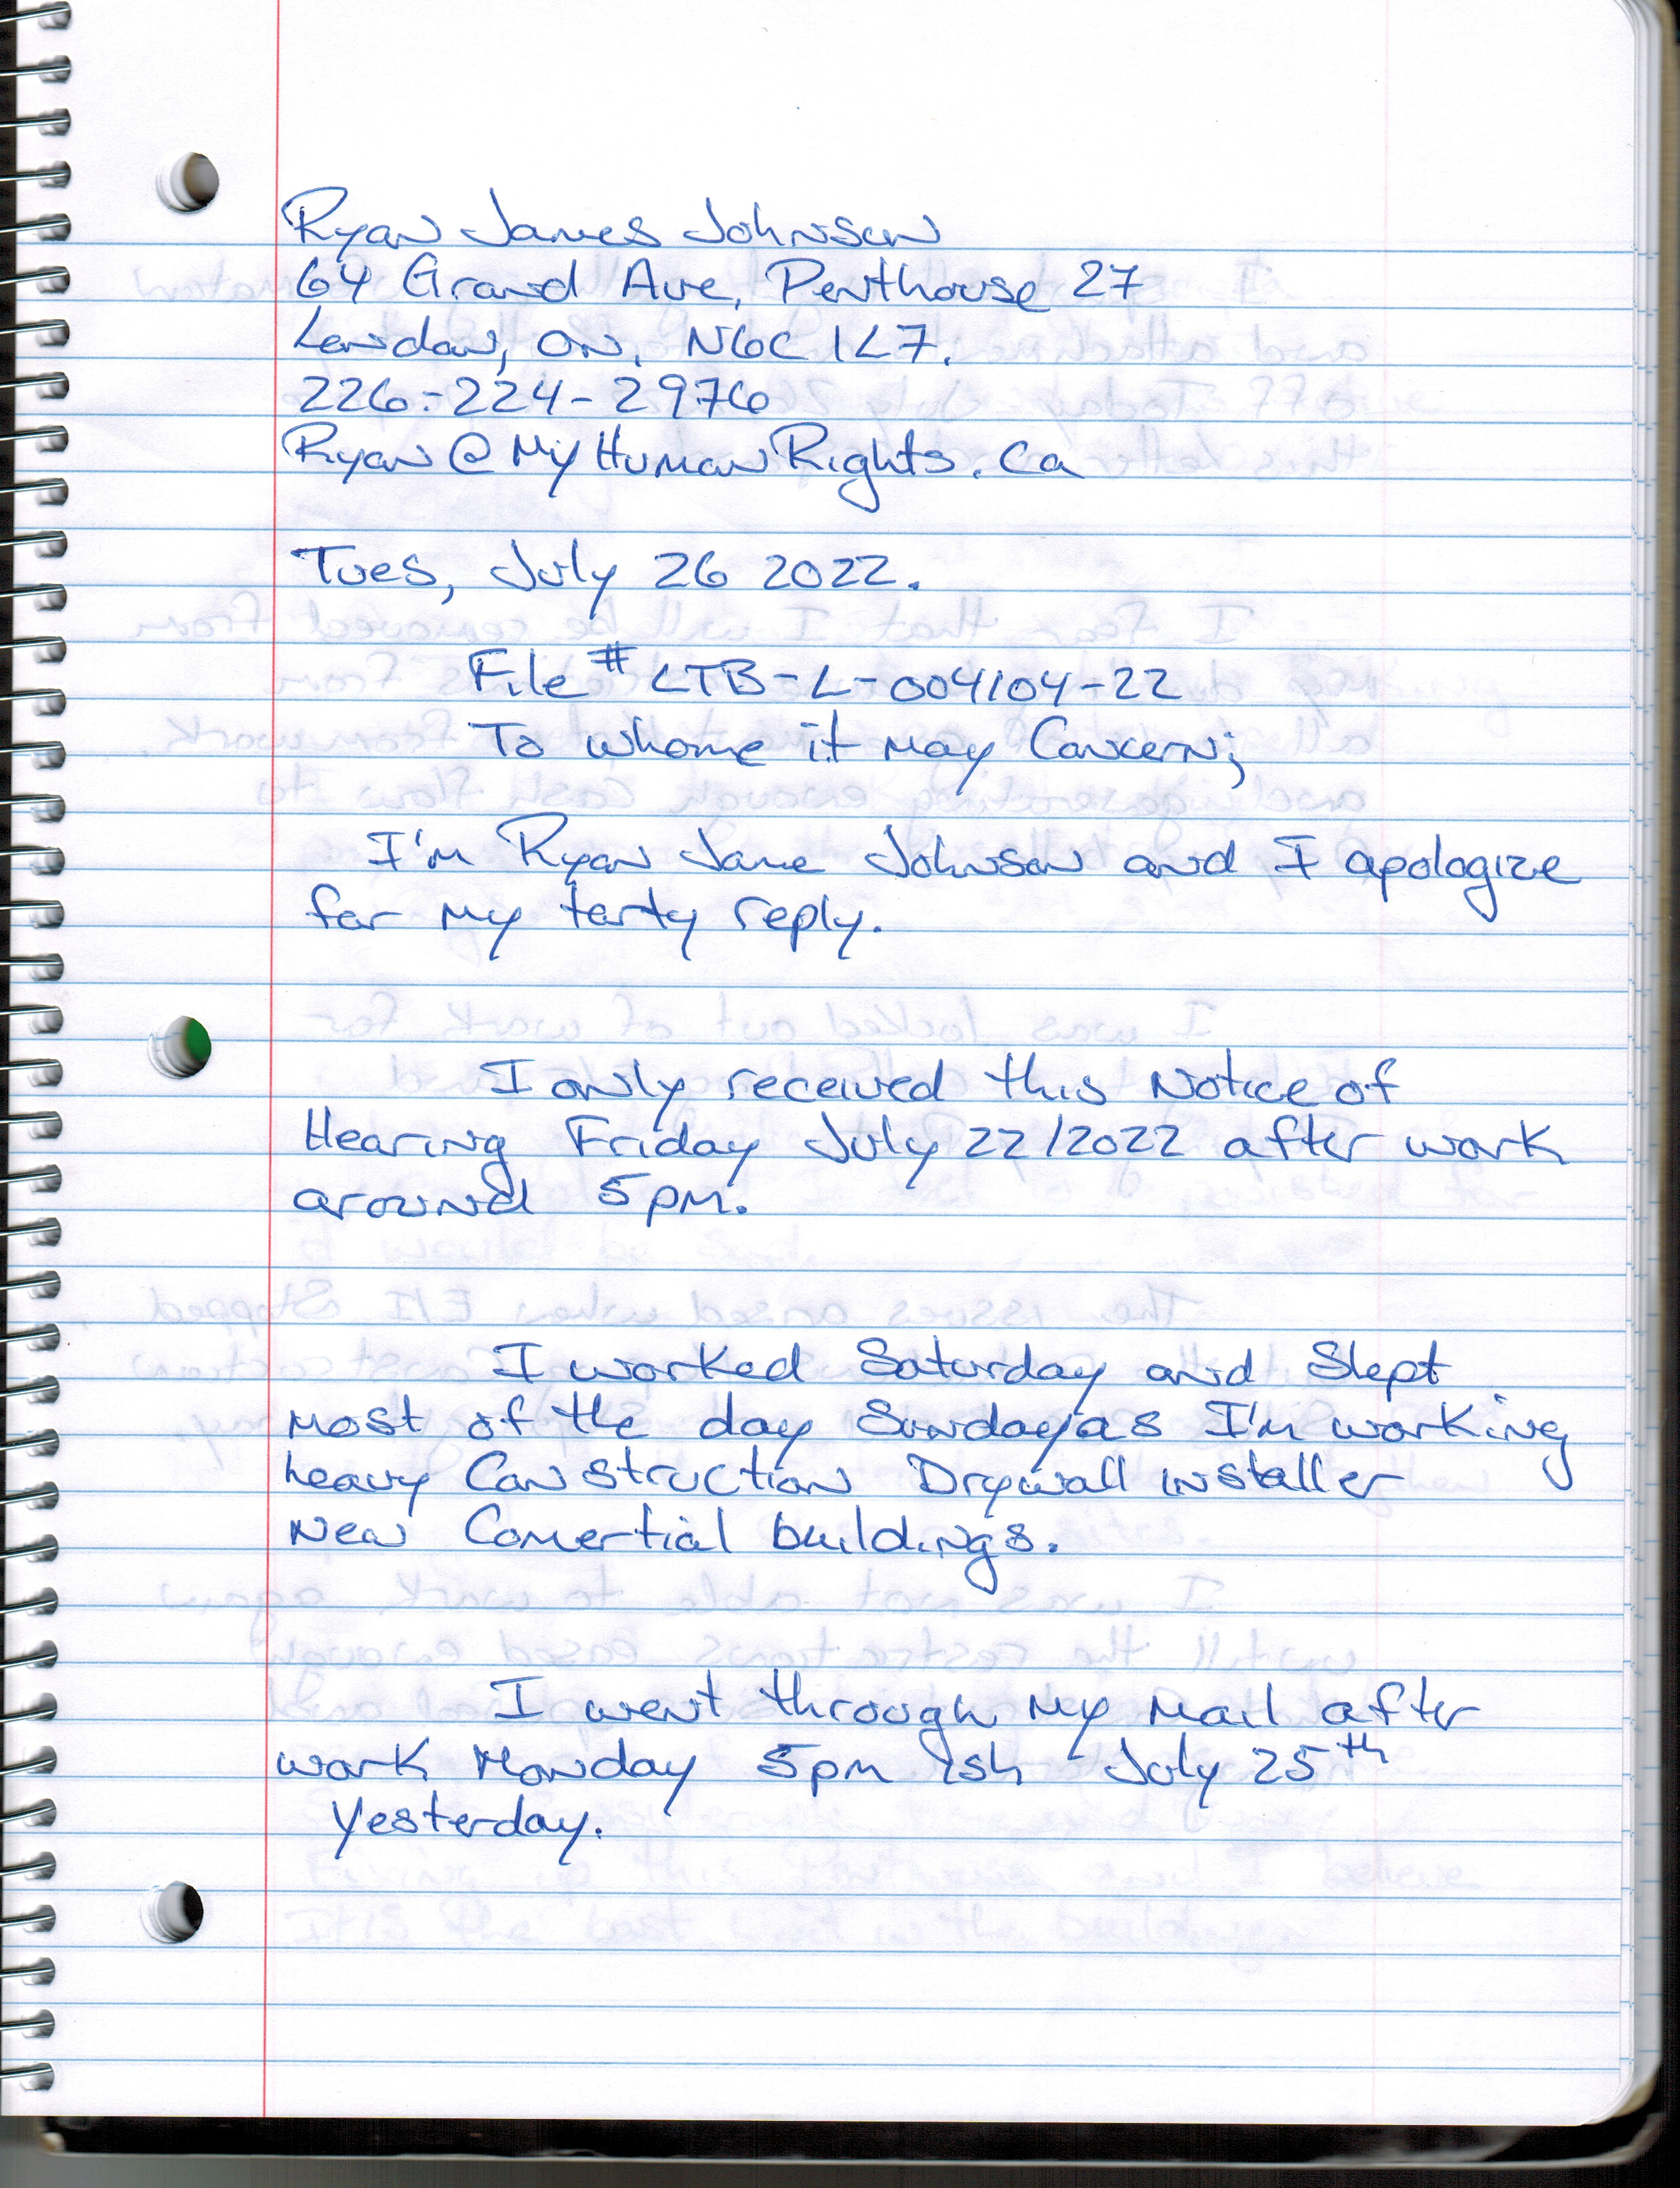 Ryan James Johnson
64 Grand Ave, Penthouse 27
London, ON, N6C 1L7.
226-224-2976
Ryan@MyHumanRights.ca
Tues, July 26 2022.
File # LTB-L-004104-22
To whome it may Concern;
I'm Ryan Jame Johnson and I apologize
for my tarty reply.
I only received this Notice of
Hearing Friday July 22/2022 after work
around 5pm.
I worked Saturday and Slept
most of the day Sunday as I'm working
heavy Construction Drywall installer
New Comertial buildings.
I went through my mail after
work Monday 5pm ish July 25th
Yesterday.